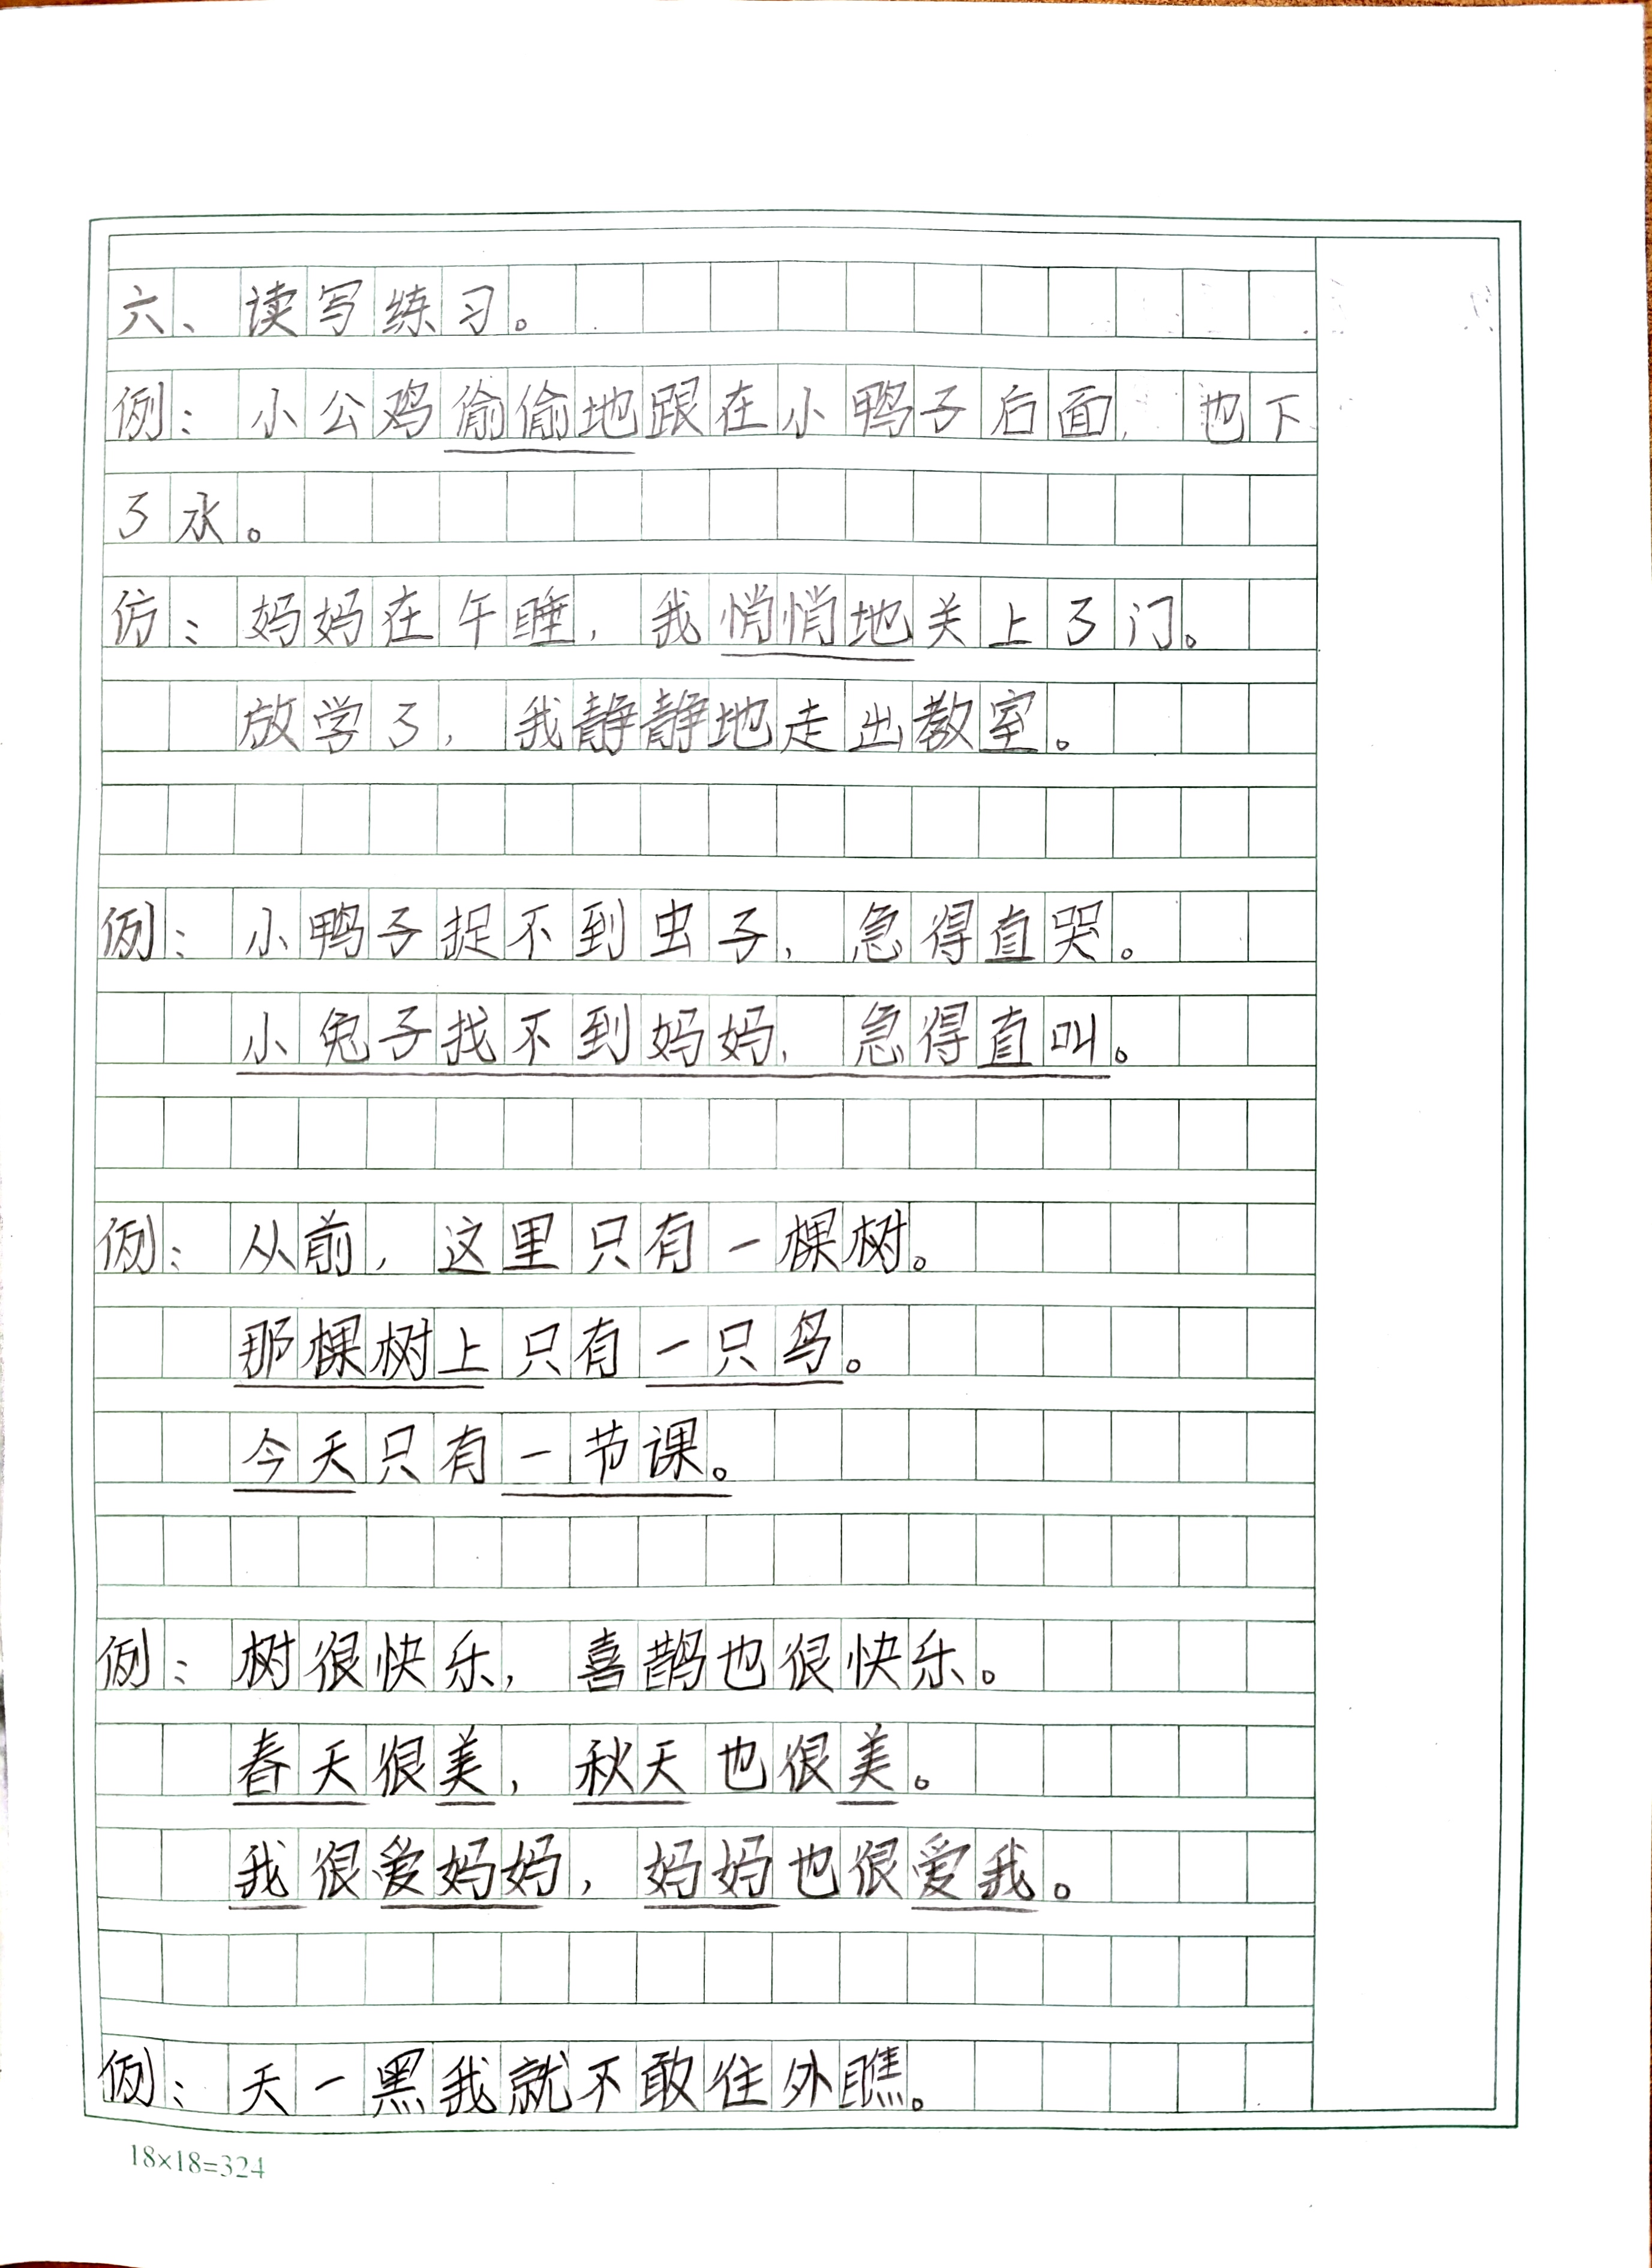 六、读写练习。
例：小公鸡偷偷地跟在小鸭子后面，也下
了水。
仿：妈妈在午睡，我悄悄地关上了门。
放学了，我静静地走出教室。
例：小鸭子捉不到虫子，急得直哭。
小兔子找不到妈妈，急得直叫。
例：从前，这里只有一棵树。
那棵树上只有一只鸟。
今天只有一节课。
例：树很快乐，喜鹊也很快乐。
春天很美，秋天也很美。
我很爱妈妈，妈妈也很爱我。
例：天一黑我就不敢往外瞧。
18×18=324